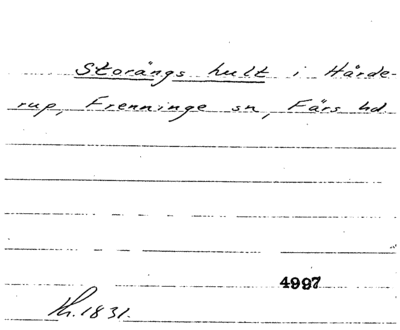 Storängs hult i Hårde-
rup, Frenninge sn, Färs hd.
4997
Lh. 1831.